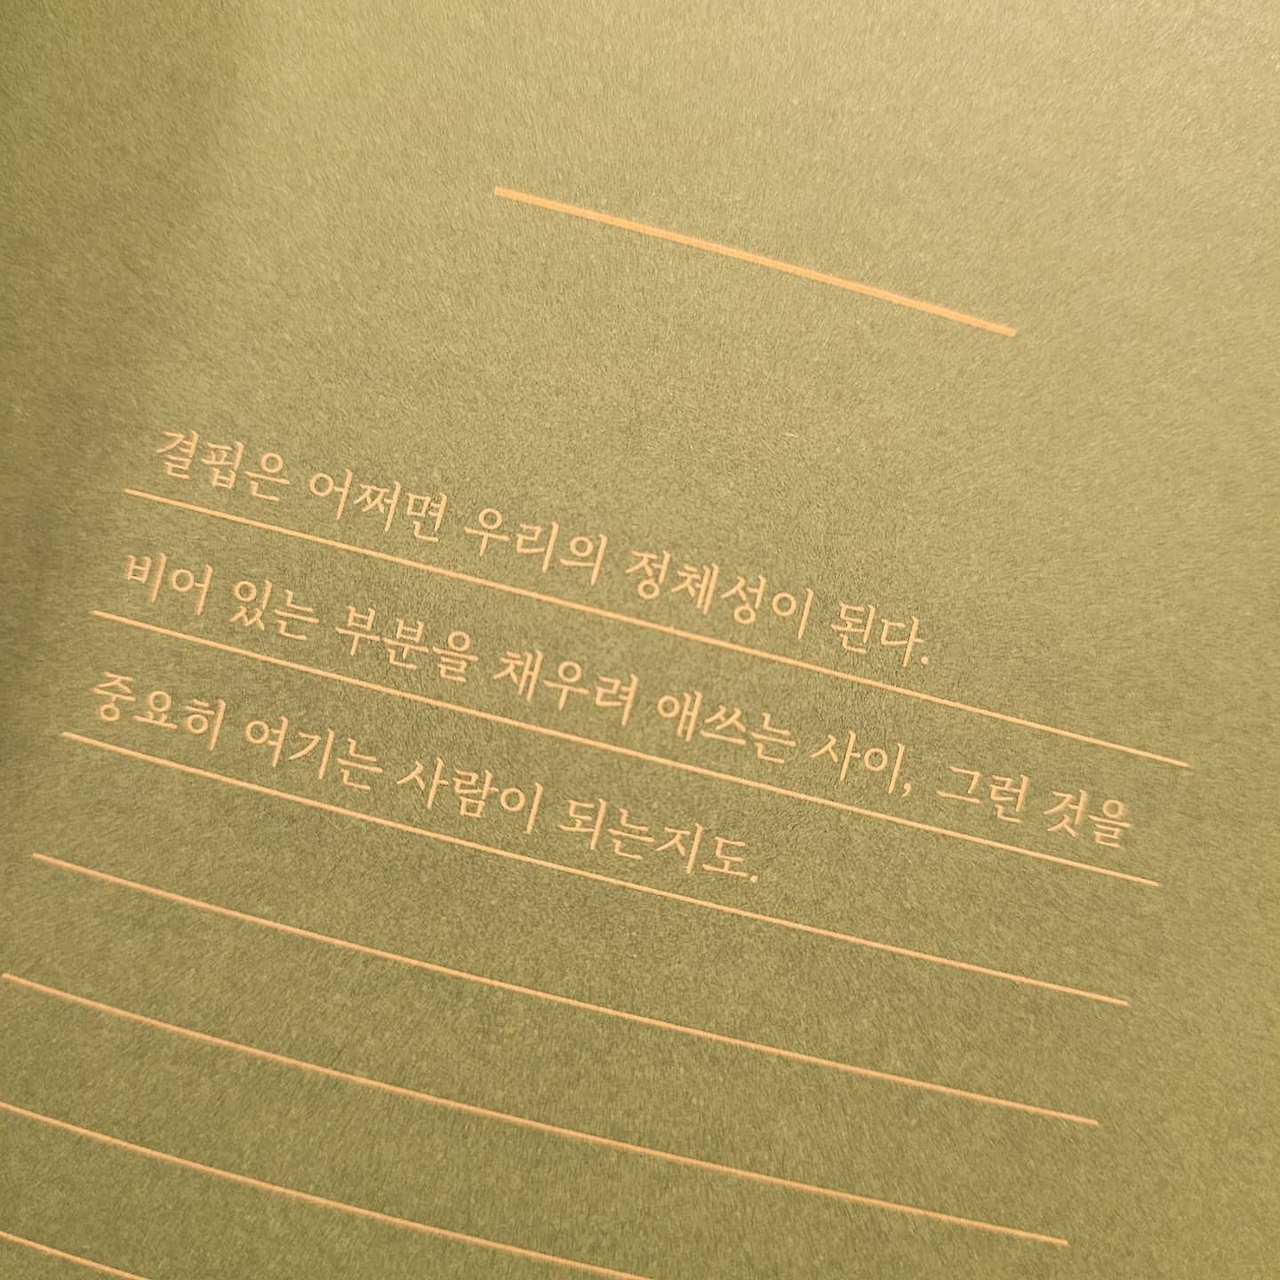 결핍은 어쩌면 우리의 정체성이 된다.
비어 있는 부분을 채우려 애쓰는 사이, 그런 것을
중요히 여기는 사람이 되는지도.